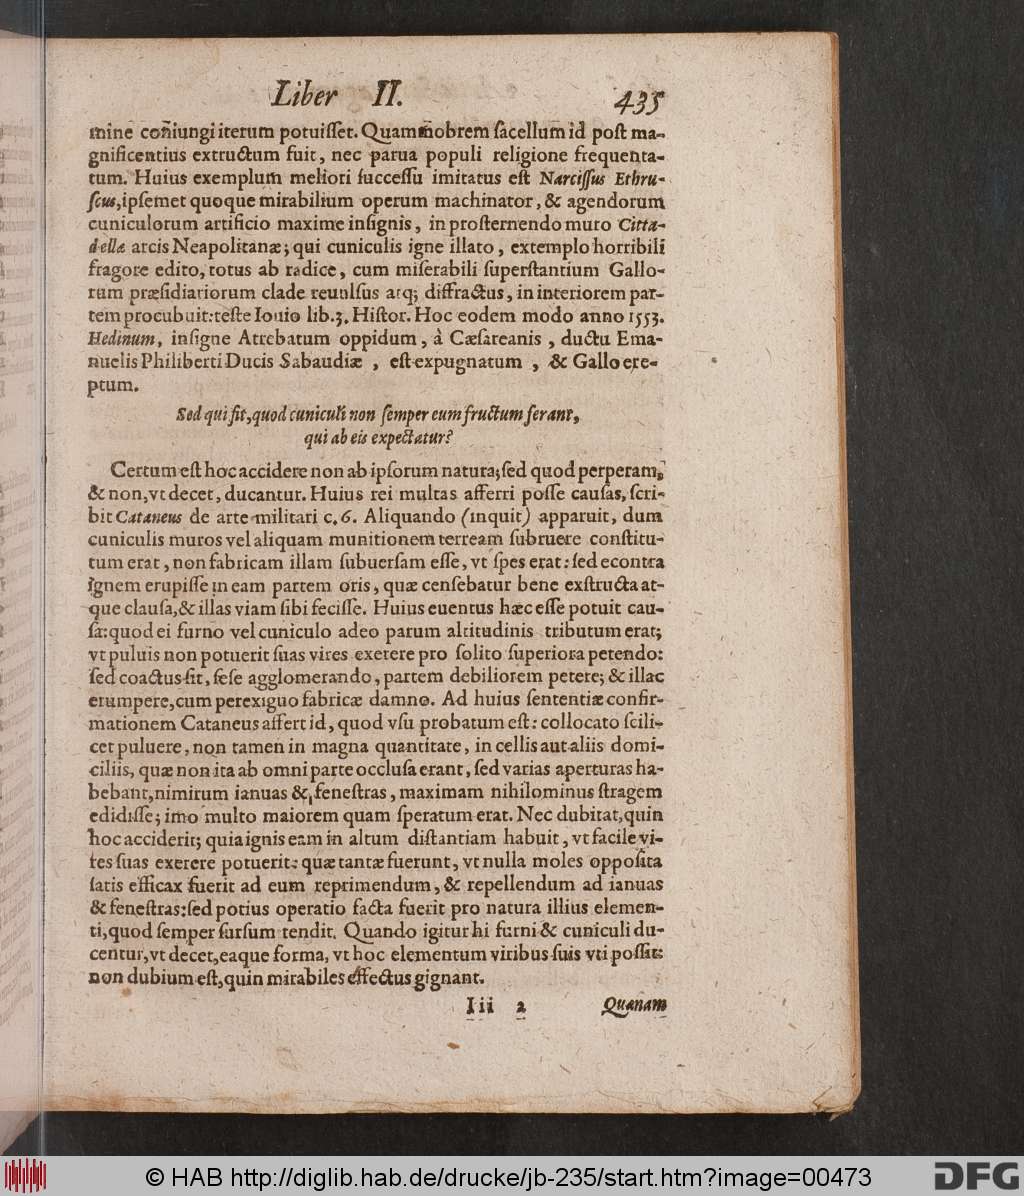 Liber II. 435
mine coniungi iterum potuiſſet. Quammobrem ſacellum id poſt ma-
gnificentius extructum fuit, nec parua populi religione frequenta-
tum. Huius exemplum meliori ſucceſſu imitatus eſt Narciſſus Ethru-
ſcus, ipſemet quoque mirabilium operum machinator, & agendorum
cuniculorum artificio maxime inſignis, in proſternendo muro Citta-
dellæ arcis Neapolitanæ; qui cuniculis igne illato, extemplo horribili
fragore edito, totus ab radice, cum miſerabili ſuperſtantium Gallo-
rum præſidiariorum clade reuulſus atq; diffractus, in interiorem par-
tem procubuit: teſte Iouio lib. 3. Hiſtor. Hoc eodem modo anno 1553.
Hedinum, inſigne Atrebatum oppidum, à Cæſareanis, ductu Ema-
nuelis Philiberti Ducis Sabaudiæ, eſt expugnatum, & Gallo ere-
ptum.
Sed qui fit, quod cuniculi non ſemper eum fructum ferant,
qui ab eis expectatur?
Certum eſt hoc accidere non ab ipſorum natura; ſed quod perperam,
& non, vt decet, ducantur. Huius rei multas afferri poſſe cauſas, ſcri-
bit Cataneus de arte militari c. 6. Aliquando (inquit) apparuit, dum
cuniculis muros vel aliquam munitionem terream ſubruere conſtitu-
tum erat, non fabricam illam ſubuerſam eſſe, vt ſpes erat: ſed econtra
ignem erupiſſe in eam partem oris, quæ cenſebatur bene exſtructa at-
que clauſa, & illas viam ſibi feciſſe. Huius euentus hæc eſſe potuit cau-
ſa: quod ei furno vel cuniculo adeo parum altitudinis tributum erat;
vt puluis non potuerit ſuas vires exerere pro ſolito ſuperiora petendo:
ſed coactus ſit, ſeſe agglomerando, partem debiliorem petere; & illac
erumpere, cum perexiguo fabricæ damno. Ad huius ſententiæ confir-
mationem Cataneus affert id, quod vſu probatum eſt: collocato ſcili-
cet puluere, non tamen in magna quantitate, in cellis aut aliis domi-
ciliis, quæ non ita ab omni parte occluſa erant, ſed varias aperturas ha-
bebant, nimirum ianuas & feneſtras, maximam nihilominus ſtragem
edidiſſe; imo multo maiorem quam ſperatum erat. Nec dubitat, quin
hoc acciderit; quia ignis eam in altum diſtantiam habuit, vt facile vi-
res ſuas exerere potuerit: quæ tantæ fuerunt, vt nulla moles oppoſita
ſatis efficax fuerit ad eum reprimendum, & repellendum ad ianuas
& feneſtras: ſed potius operatio facta fuerit pro natura illius elemen-
ti, quod ſemper ſurſum tendit. Quando igitur hi furni & cuniculi du-
centur, vt decet, eaque forma, vt hoc elementum viribus ſuis vti poſſit:
non dubium eſt, quin mirabiles effectus gignant.
Iii 2 Quanam
© HAB http://diglib.hab.de/drucke/jb-235/start.htm?image=00473
DFG